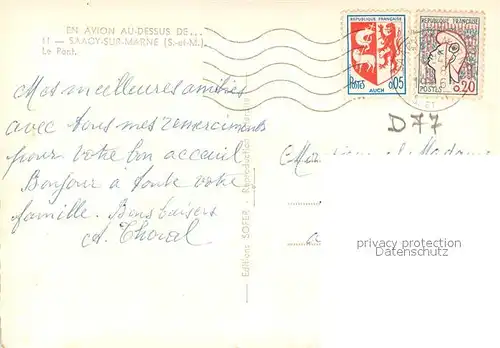 EN AVION AU-DESSUS DE...
11 — SAACY-SUR-MARNE (S.-et-M.)
Le Pont.
REPUBLIQUE FRANÇAISE
POSTES 0,05
AUCH
REPUBLIQUE FRANÇAISE
POSTES 0,20
D77
Mes meilleures amitiés
avec tous mes remerciments
pour votre bon accueil
Bonjour à toute votre
famille. Bons baisers
Editions SOFER - Reproduction
et Madame
privacy protection
Datenschutz